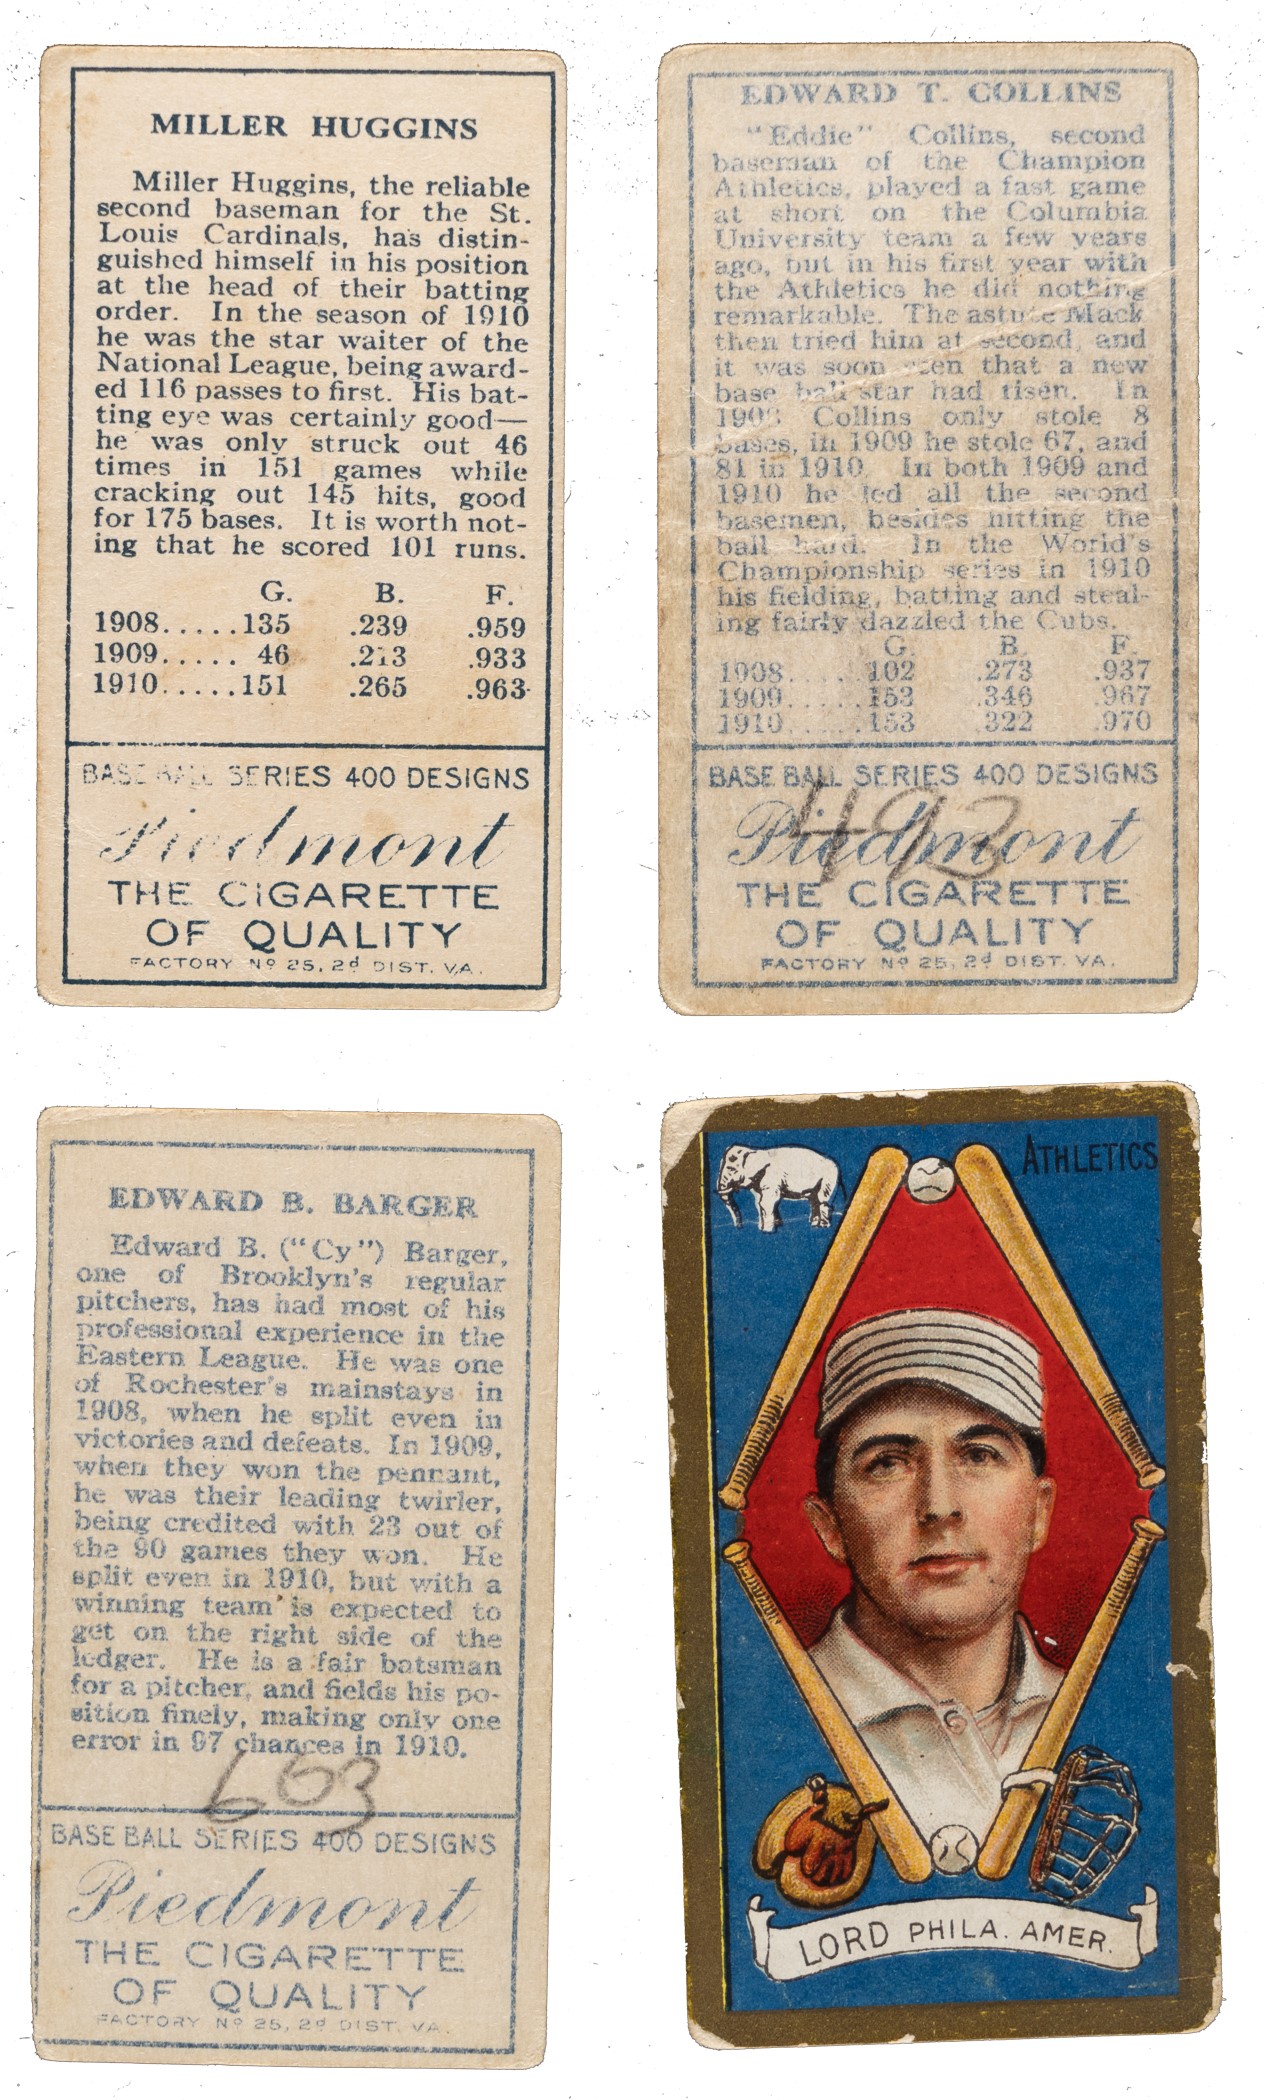 MILLER HUGGINS
Miller Huggins, the reliable
second baseman for the St.
Louis Cardinals, has distin-
guished himself in his position
at the head of their batting
order. In the season of 1910
he was the star waiter of the
National League, being award-
ed 116 passes to first. His bat-
ting eye was certainly good—
he was only struck out 46
times in 151 games while
cracking out 145 hits, good
for 175 bases. It is worth not-
ing that he scored 101 runs.
G. B. F.
1908.....135 .239 .959
1909..... 46 .213 .933
1910.....151 .265 .963
BASE BALL SERIES 400 DESIGNS
Piedmont
THE CIGARETTE
OF QUALITY
FACTORY No 25, 2d DIST. VA.
EDWARD T. COLLINS
"Eddie" Collins, second
baseman of the Champion
Athletics, played a fast game
at short on the Columbia
University team a few years
ago, but in his first year with
the Athletics he did nothing
remarkable. The astute Mack
then tried him at second, and
it was soon seen that a new
base ball star had risen. In
1908 Collins only stole 8
bases, in 1909 he stole 67, and
81 in 1910. In both 1909 and
1910 he led all the second
basemen, besides hitting the
ball hard. In the World's
Championship series in 1910
his fielding, batting and steal-
ing fairly dazzled the Cubs.
G. B. F.
1908.....102 .273 .937
1909.....153 .346 .967
1910.....153 .322 .970
BASE BALL SERIES 400 DESIGNS
493
Piedmont
THE CIGARETTE
OF QUALITY
FACTORY No 25, 2d DIST. VA.
EDWARD B. BARGER
Edward B. ("Cy") Barger,
one of Brooklyn's regular
pitchers, has had most of his
professional experience in the
Eastern League. He was one
of Rochester's mainstays in
1908, when he split even in
victories and defeats. In 1909,
when they won the pennant,
he was their leading twirler,
being credited with 23 out of
the 90 games they won. He
split even in 1910, but with a
winning team is expected to
get on the right side of the
ledger. He is a fair batsman
for a pitcher, and fields his po-
sition finely, making only one
error in 97 chances in 1910.
663
BASE BALL SERIES 400 DESIGNS
Piedmont
THE CIGARETTE
OF QUALITY
FACTORY No 25, 2d DIST. VA.
ATHLETICS
LORD PHILA. AMER.